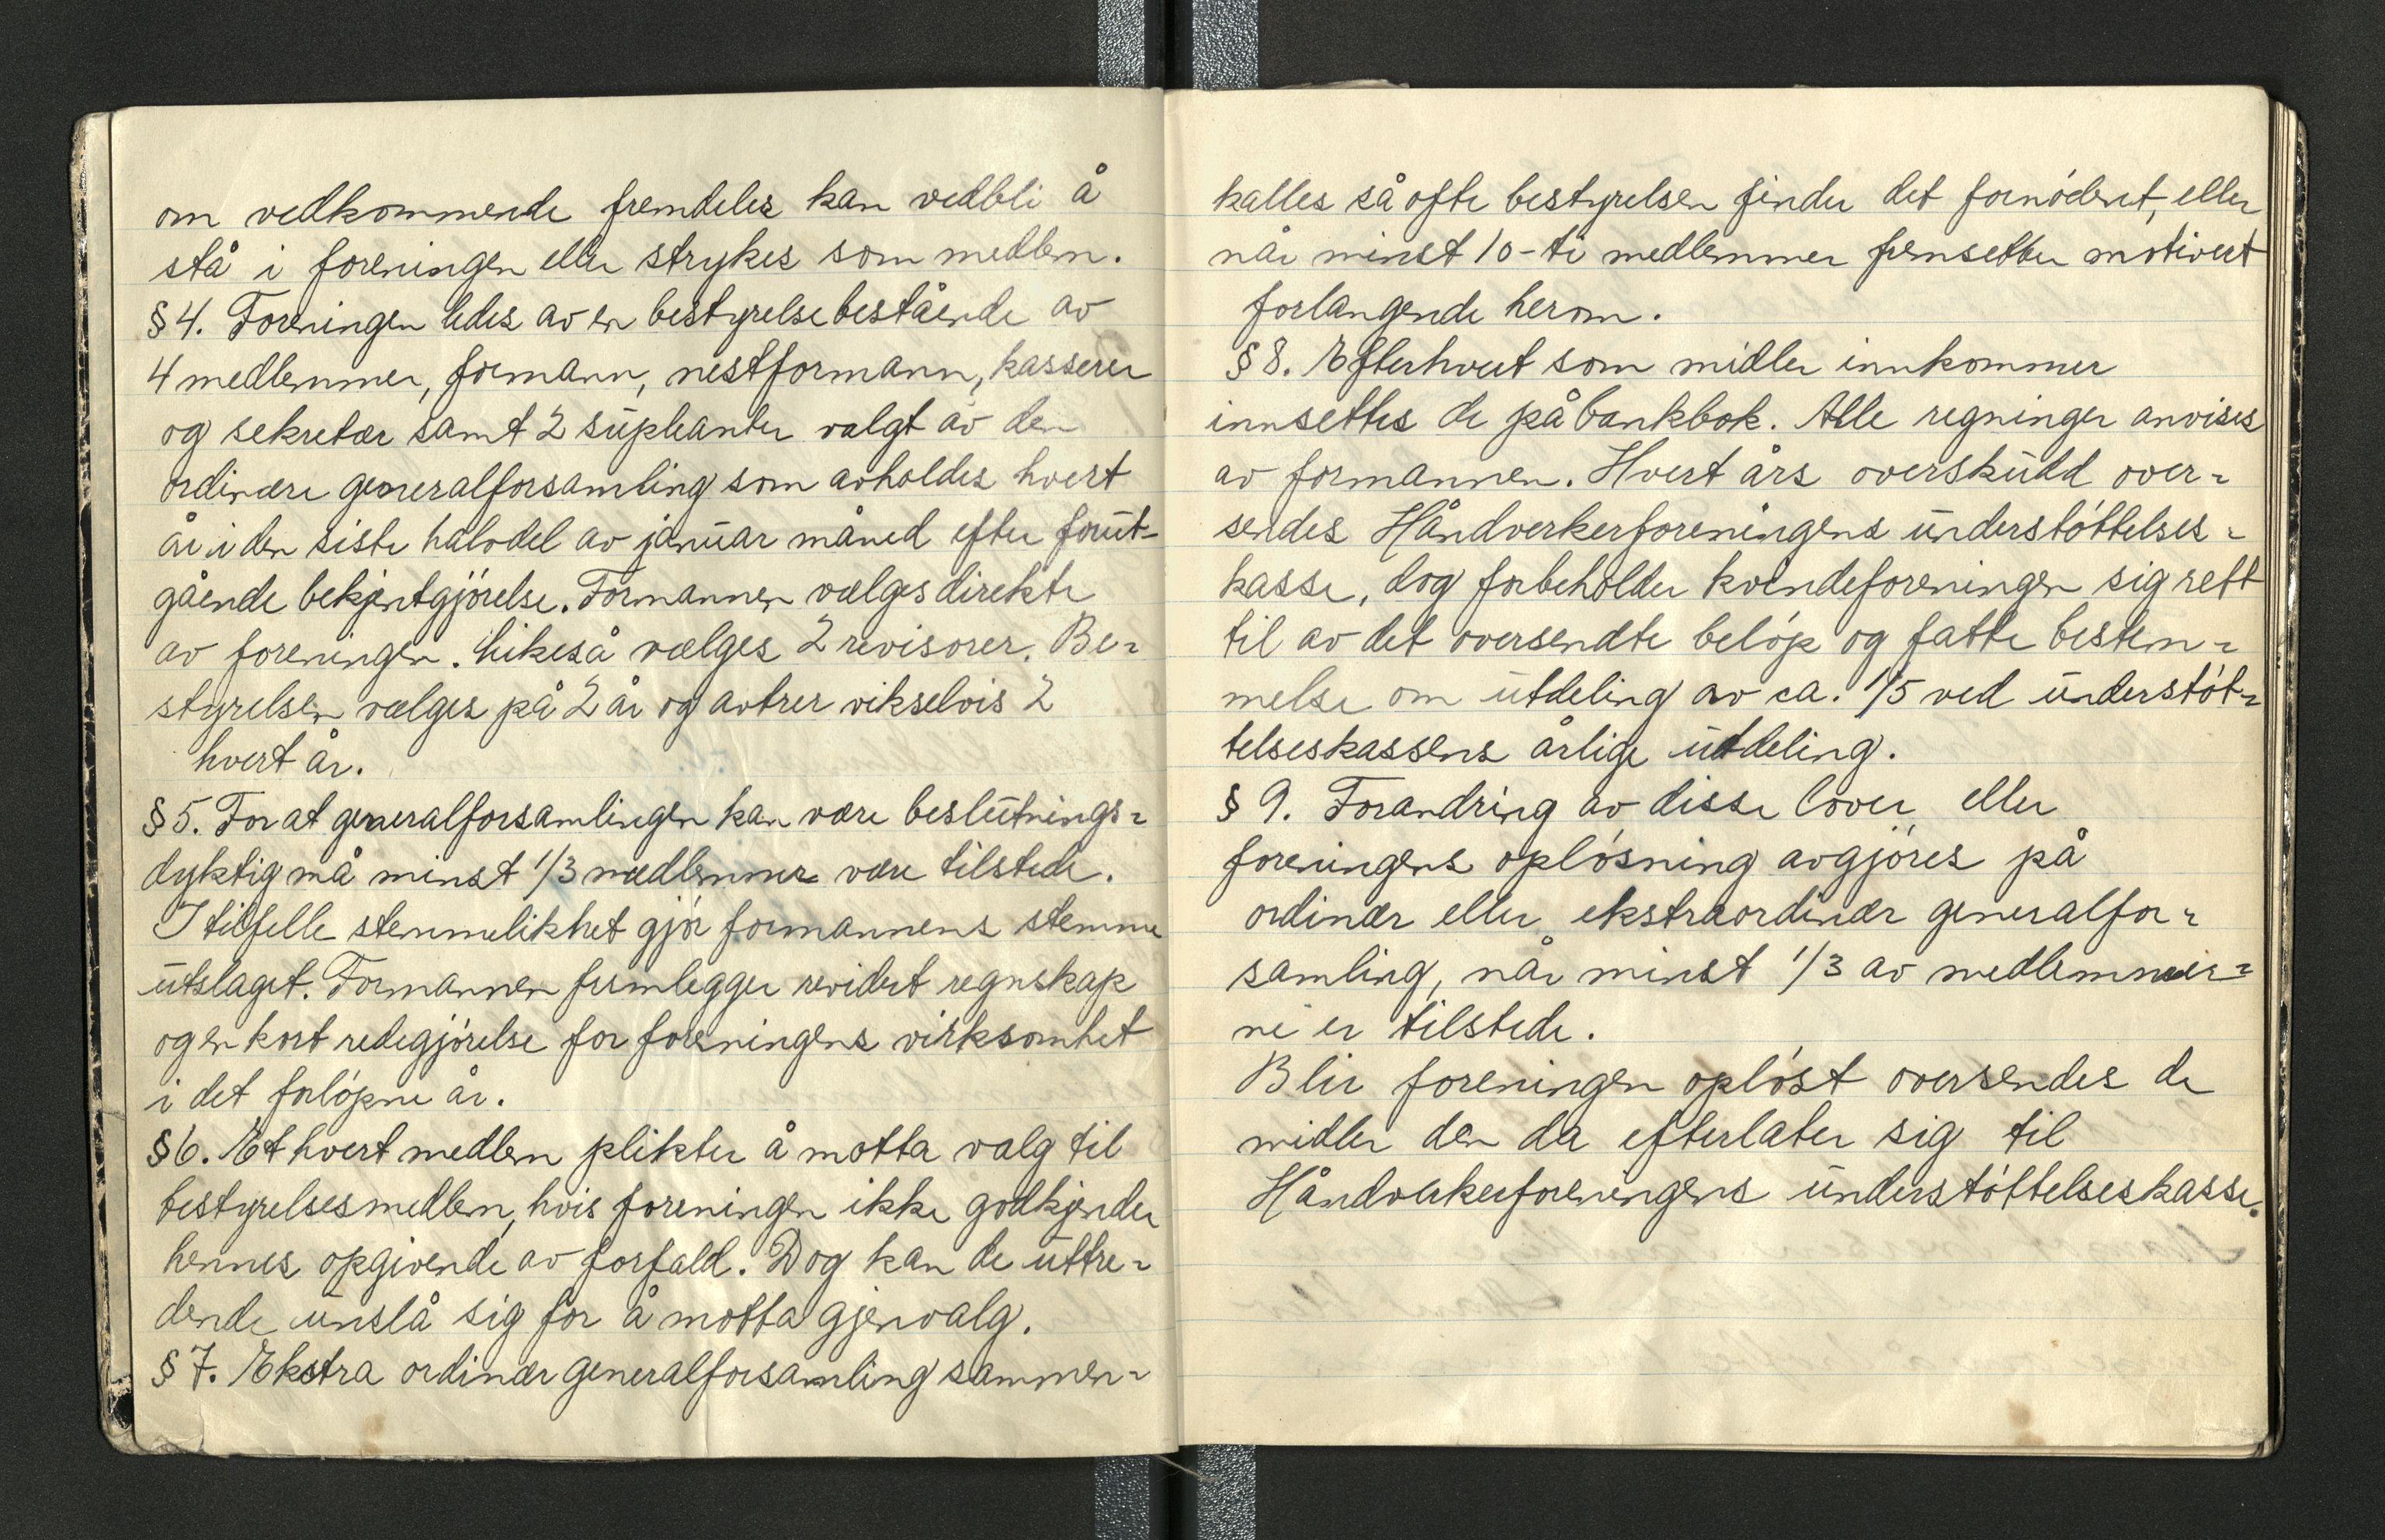 om vedkommende fremdeles kan vedbli å
stå i foreningen eller strykes som medlem.
§ 4. Foreningen ledes av en bestyrelse bestående av
4 medlemmer, formann, nestformann, kasserer
og sekretær samt 2 supleanter valgt av den
ordinære generalforsamling som avholdes hvert
år i den siste halvdel av januar måned efter forut-
gående bekjentgjörelse. Formannen vælges direkte
av foreningen. Likeså vælges 2 revisorer. Be-
styrelsen vælges på 2 år og avtrer vikselvis 2
hvert år.
§ 5. For at generalforsamlingen kan være beslutnings-
dyktig må minst 1/3 medlemmer være tilstede.
I tilfelle stemmelikhet gjör formannens stemme
utslaget. Formannen fremlegger revidert regnskap
og en kort redegjörelse for foreningens virksomhet
i det forlöpne år.
§ 6. Et hvert medlem plikter å motta valg til
bestyrelsesmedlem, hvis foreningen ikke godkjender
hennes opgivende av forfald. Dog kan de uttre-
dende unslå sig for å motta gjenvalg.
§ 7. Ekstra ordinær generalforsamling sammen-
kalles så ofte bestyrelsen finder det fornödent, eller
når minst 10-ti medlemmer fremsetter motivert
forlangende herom.
§ 8. Efterhvert som midler innkommer
innsettes de på bankbok. Alle regninger anvises
av formannen. Hvert års overskudd over-
sendes Håndverkerforeningens understöttelses-
kasse, dog forbeholder kvindeforeningen sig rett
til av det oversendte belöp og fatte bestem-
melse om utdeling av ca. 1/5 ved understöt-
telseskassens årlige utdeling.
§ 9. Forandring av disse lover eller
foreningens oplösning avgjöres på
ordinær eller ekstraordinær generalfor-
samling, når minst 1/3 av medlemmer-
ne er tilstede.
Blir foreningen oplöst oversendes de
midler den da efterlater sig til
Håndverkerforeningens understöttelseskasse.